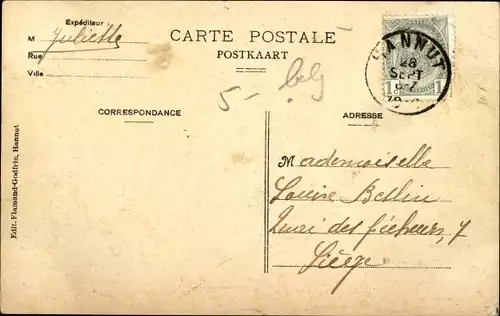 Expéditeur :
M Juliette
Rue
Ville
CARTE POSTALE
POSTKAART
HANNUT
28
SEPT
1
1
5 - belg
CORRESPONDANCE
ADRESSE
Mademoiselle
Louise Bellin
des
7
Liège
Edit. Flamand-Godfrin, Hannut.